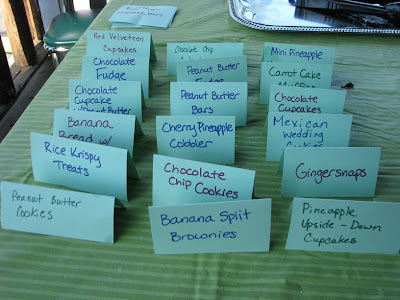 Red Velveteen
Cupcakes
Chocolate
Fudge
Chocolate
Cupcake
Banana
Bread w/
Rice Krispy
Treats
Peanut Butter
Cookies
Chocolate Chip
Peanut Butter
Fudge
Peanut Butter
Bars
Cherry Pineapple
Cobbler
Chocolate
Chip Cookies
Banana Split
Brownies
Mini Pineapple
Carrot Cake
Chocolate
Cupcakes
Mexican
Wedding
Cookies
Gingersnaps
Pineapple
Upside-Down
Cupcakes